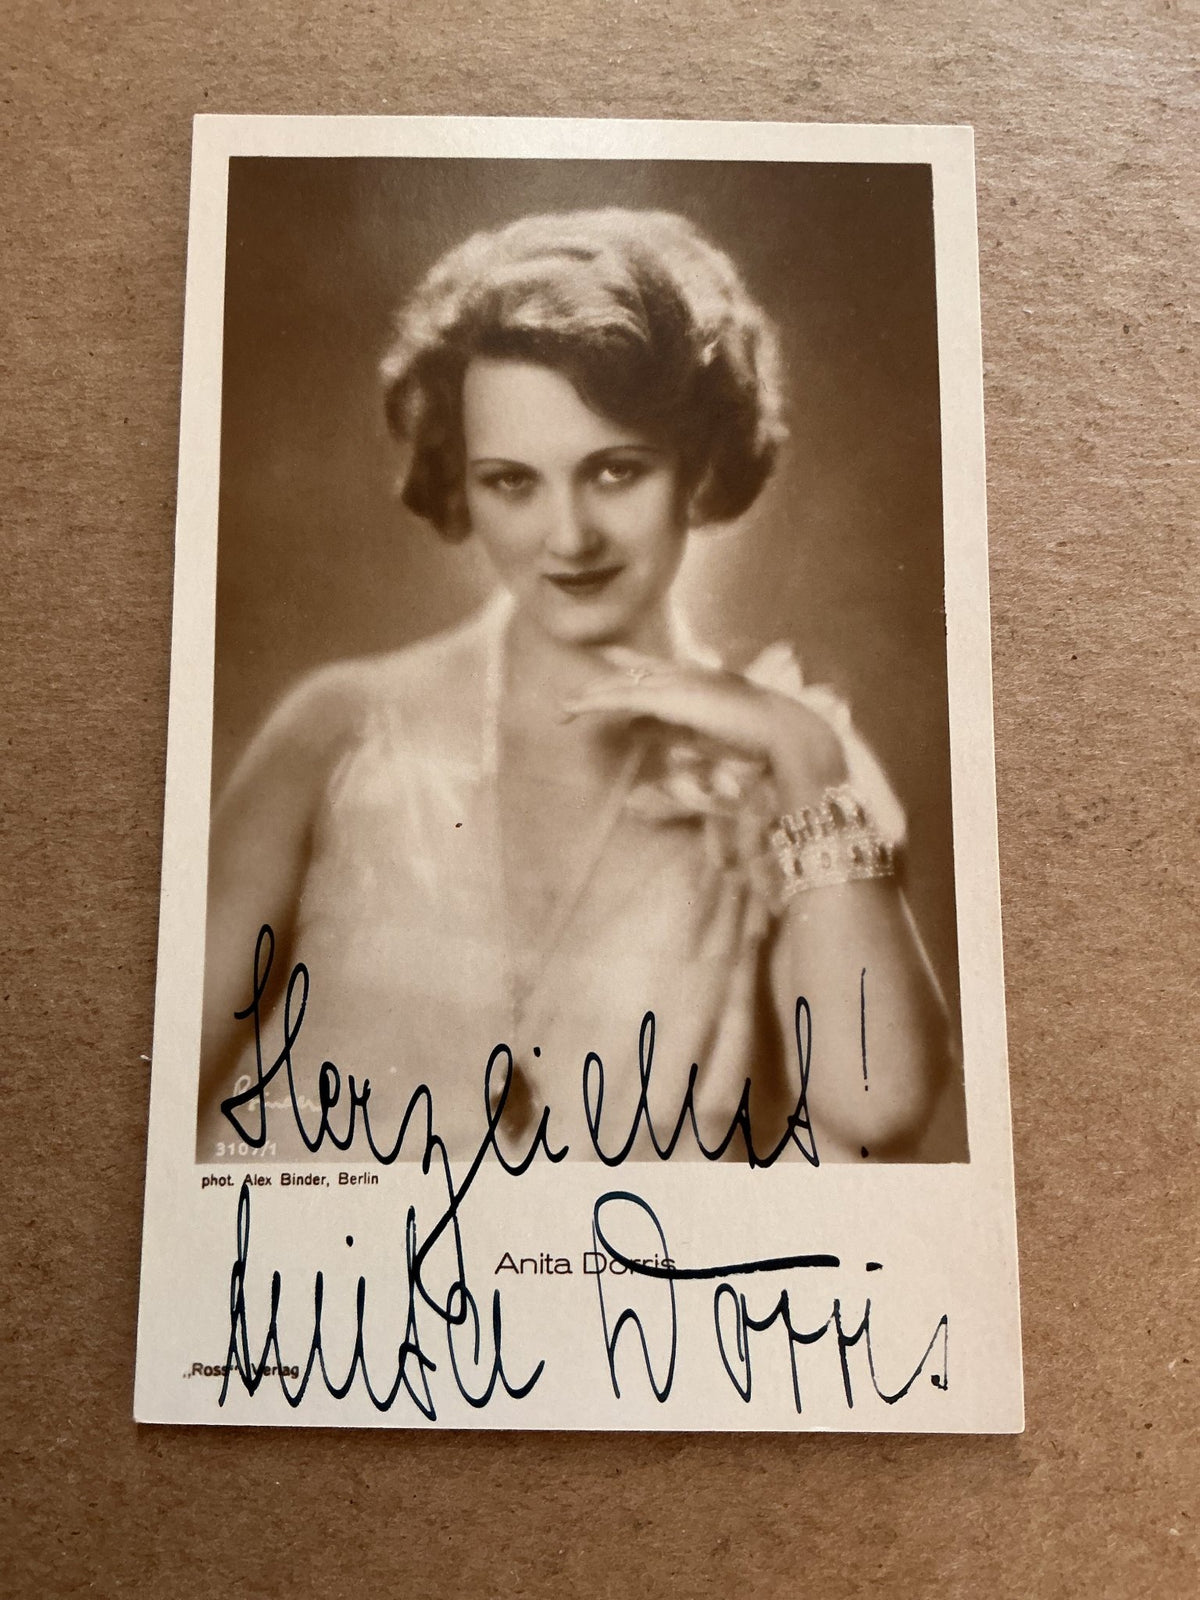 Herzlichst!
Binder
3107/1
phot. Alex Binder, Berlin
Anita Dorris
Anita Dorris
„Ross“ Verlag